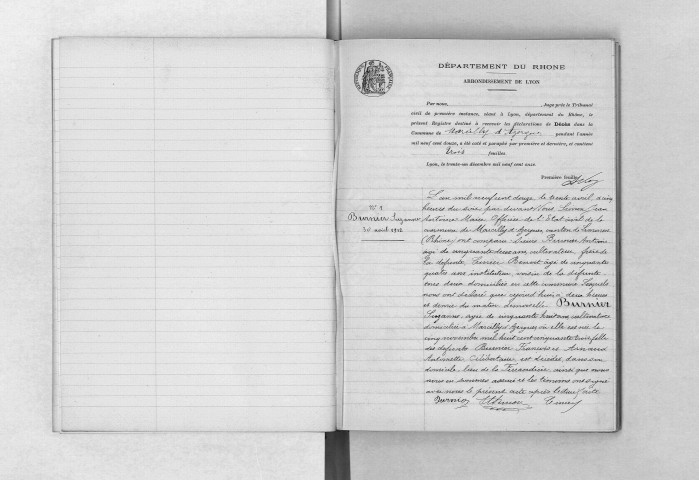 DÉPARTEMENT DU RHONE
ARRONDISSEMENT DE LYON
Par nous, Juge près le Tribunal
civil de première instance, séant à Lyon, département du Rhône, le
présent Registre destiné à recevoir les déclarations de Décès dans la
Commune de Marcilly d'Azergues pendant l'année
mil neuf cent douze, a été coté et paraphé par première et dernière, et contient
trois feuilles
Lyon, le trente-un décembre mil neuf cent onze.
Première feuille
N° 1
Burnier Suzanne
30 avril 1912
L'an mil neuf cent douze le trente avril, à cinq
heures du soir, par devant Nous Jean
Antoine Marie Officier de l'Etat civil de la
commune de Marcilly d'Azergues canton de Limonest
(Rhône) ont comparu Burnier Antoine
âgé de cinquante ans cultivateur, frère de
la défunte, Benoit âgé de cinquante
quatre ans instituteur, voisin de la défunte
tous deux domiciliés en cette commune Lesquels
nous ont déclaré que cejourd'hui à deux heures
et demie du matin Demoiselle Burnier
Suzanne, âgée de cinquante huit ans cultivatrice
domiciliée à Marcilly d'Azergues où elle est née le
cinq novembre mil huit cent cinquante trois fille
des défunts Burnier François et Arnaud
Antoinette, Célibataire, est décédée, dans son
domicile, lieu de la ainsi que nous
nous en sommes assuré et les témoins ont signé
avec nous le présent acte après lecture faite
Burnier